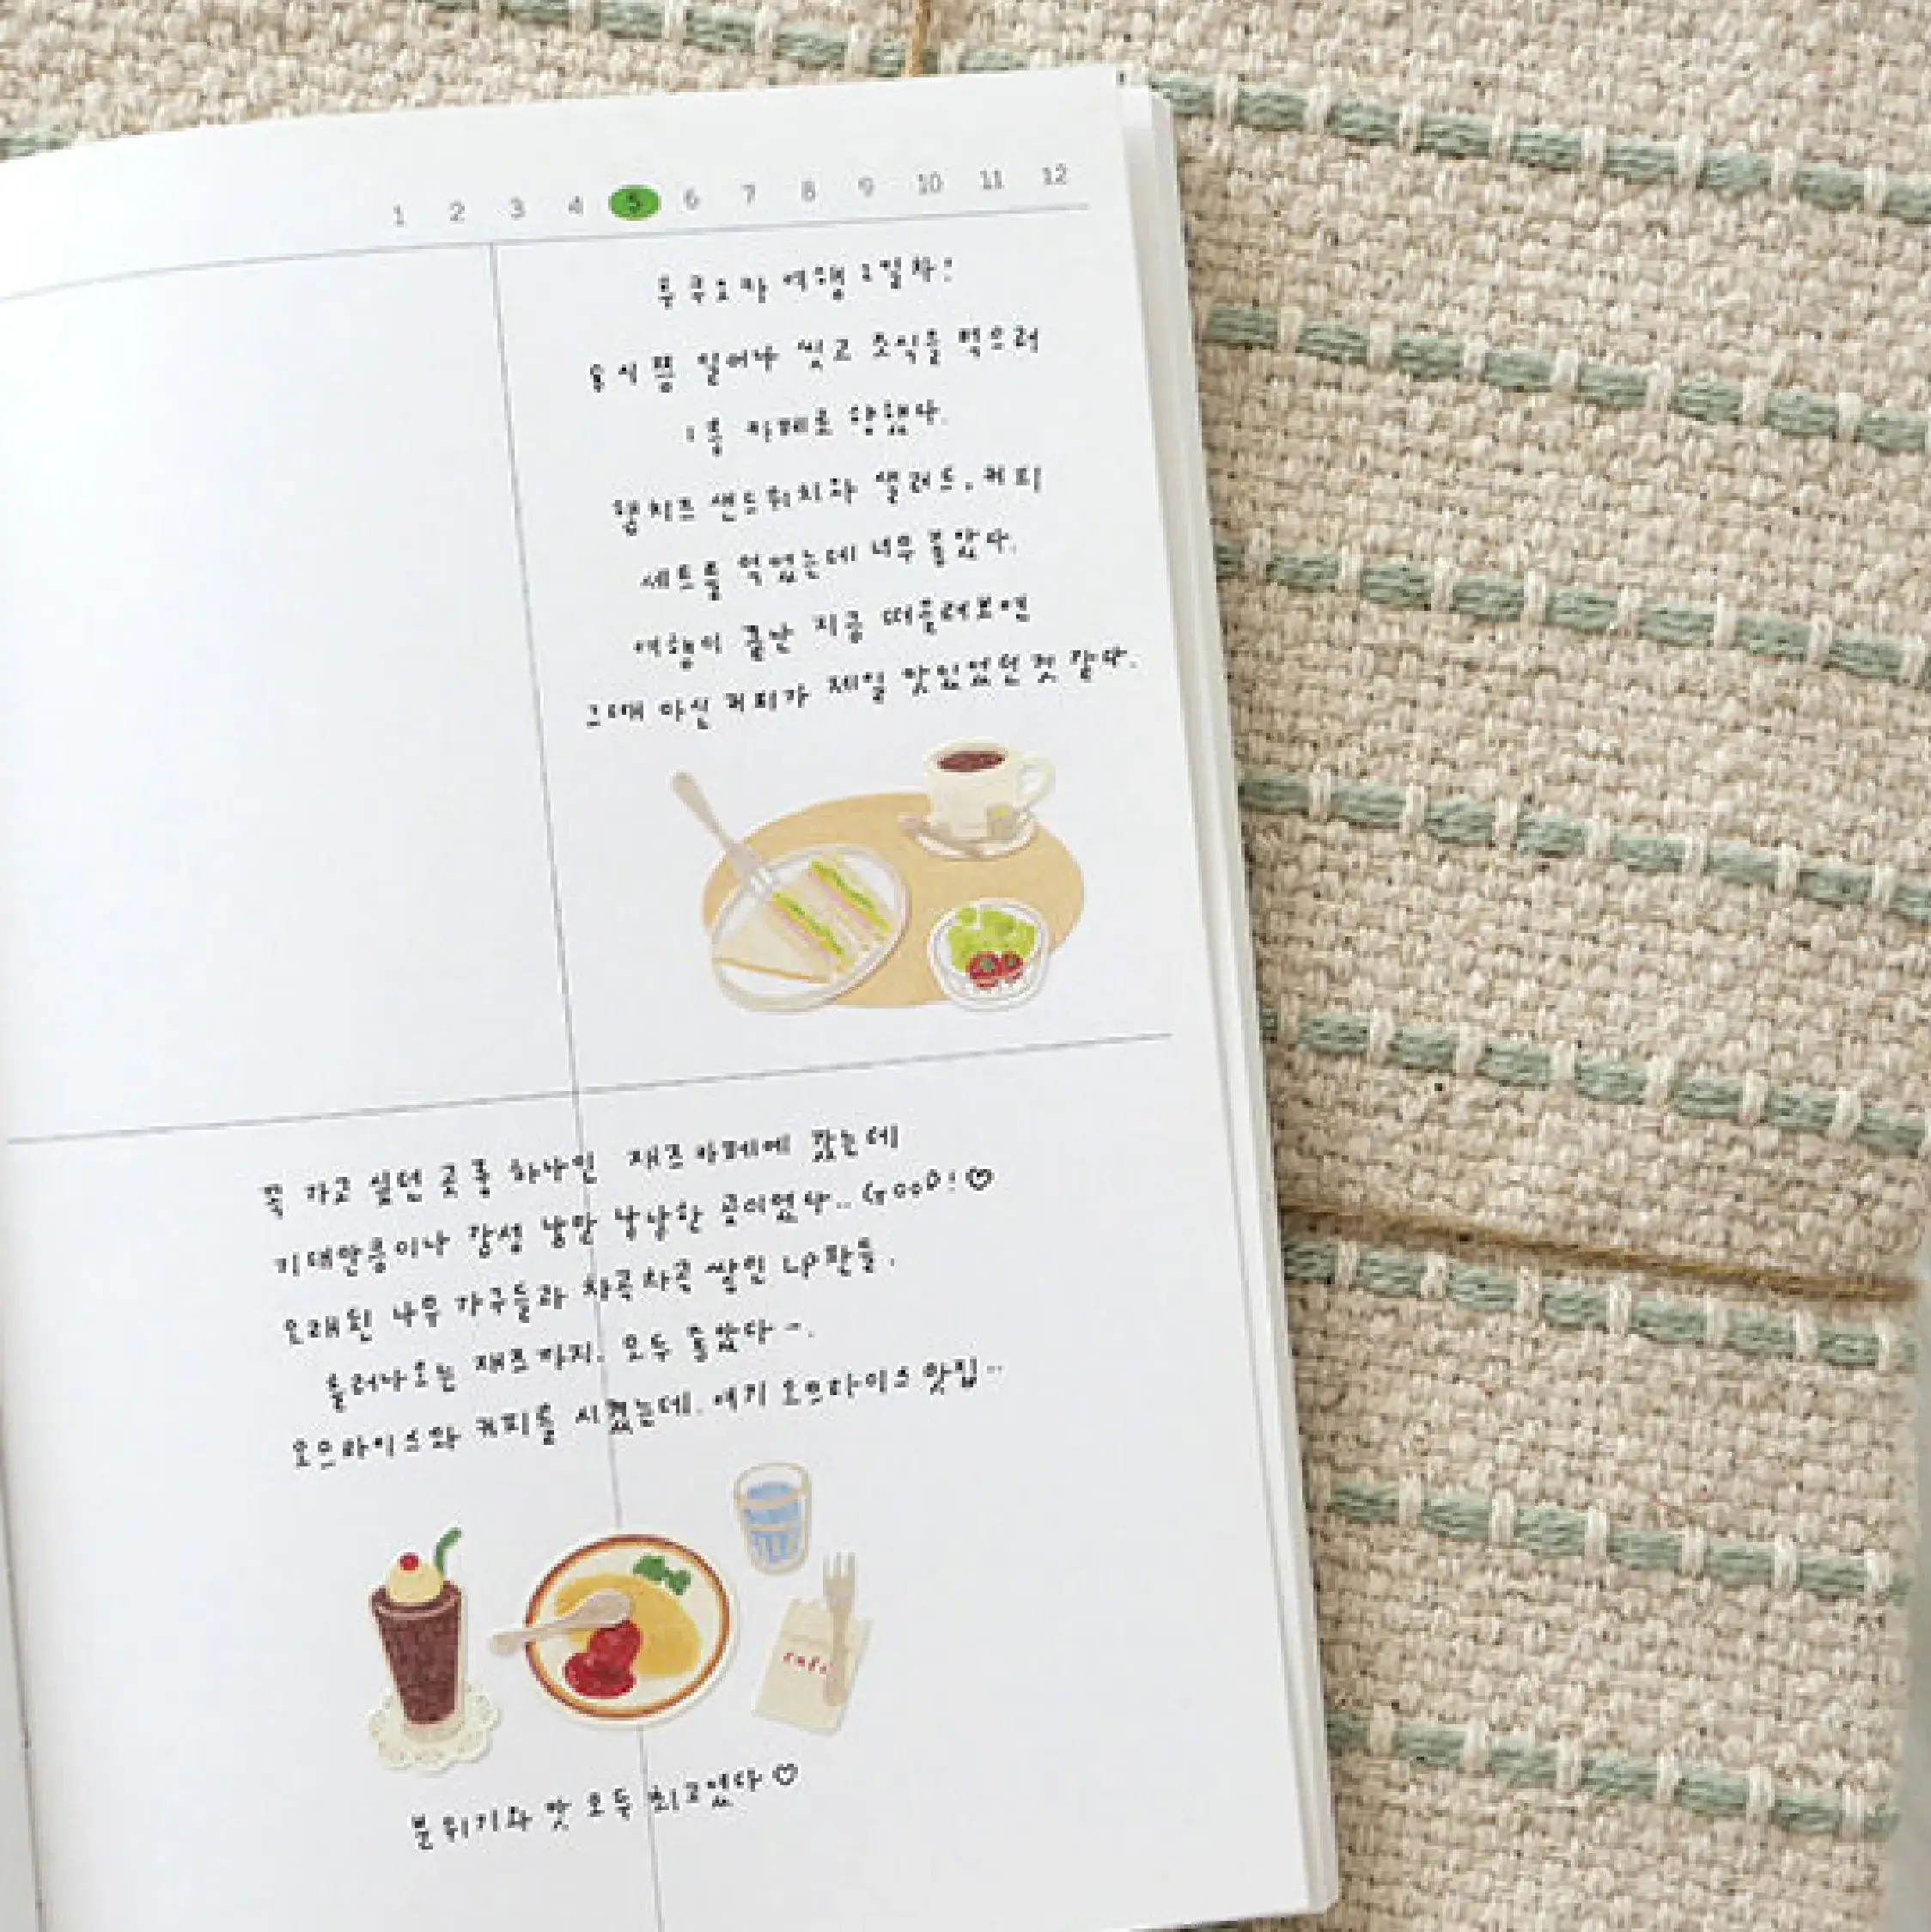 1 2 3 4 5 6 7 8 9 10 11 12
후쿠오카 여행 2일차!
8시쯤 일어나 씻고 조식을 먹으러
1층 카페로 향했다.
햄치즈 샌드위치와 샐러드, 커피
세트를 먹었는데 너무 좋았다.
여행이 끝난 지금 떠올려보면
그때 마신 커피가 제일 맛있었던 것 같다.
꼭 가고 싶던 곳 중 하나인 재즈카페에 갔는데
기대만큼이나 감성 낭만 낭낭한 곳이었다.. GOOD!♡
오래된 나무 가구들과 차곡차곡 쌓인 LP판들,
흘러나오는 재즈까지. 모두 좋았다~.
오므라이스와 커피를 시켰는데, 여기 오므라이스 맛집..
cafe
분위기와 맛 모두 최고였다♡